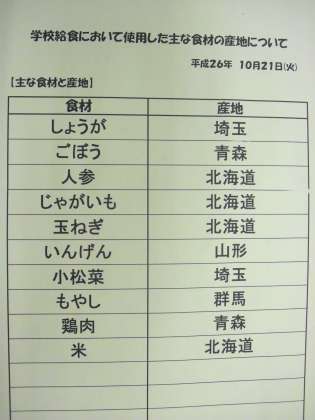 学校給食において使用した主な食材の産地について
平成26年 10月21日(火)
【主な食材と産地】
食材 産地
しょうが 埼玉
ごぼう 青森
人参 北海道
じゃがいも 北海道
玉ねぎ 北海道
いんげん 山形
小松菜 埼玉
もやし 群馬
鶏肉 青森
米 北海道